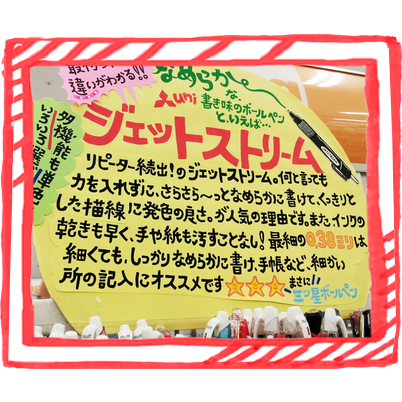 違いがわかる!!
なめらか〜
な、
uni 書き味のボールペン
と、いえば…
ジェットストリーム
多機能も単色も
リピーター続出!のジェットストリーム。何と言っても
力を入れずに、さらさら〜っとなめらかに書けて、くっきりと
した描線に発色の良さ。が人気の理由です。また、インクの
乾きも早く、手や紙も汚すことなし!最細の0.38ミリは、
細くても、しっかりなめらかに書け、手帳など、細かい
所の記入にオススメです☆☆☆ まさに!!
三ツ星ボールペン